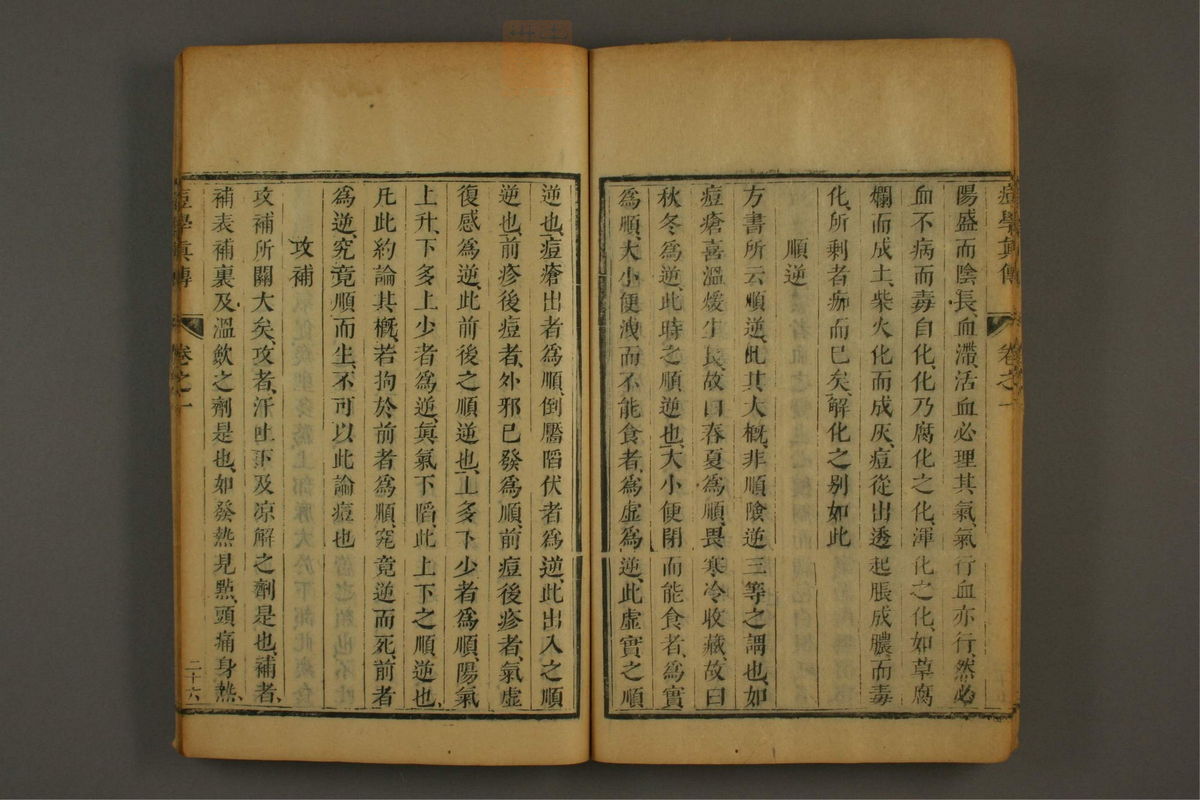 痘學眞傳 卷之一
陽盛而陰長血滯活血必理其氣氣行血亦行然必
血不病而毒自化、化乃腐化之化、渾化之化、如草腐
爛而成土、柴火化而成灰、痘從出透起脹成膿而毒
化、所剩者痂而已矣、解化之别如此
順逆
方書所云順逆、此其大概、非順險逆三等之謂也、如
痘瘡喜溫煖生長、故曰春夏爲順、畏寒冷收藏、故曰
秋冬爲逆、此時之順逆也、大小便閉而能食者、爲實
爲順、大小便洩而不能食者、爲虛爲逆、此虛實之順
逆也、痘瘡出者爲順、倒靨陷伏者爲逆、此出入之順
逆也、前疹後痘者、外邪已發爲順、前痘後疹者、氣虛
復感爲逆、此前後之順逆也、上多下少者爲順、陽氣
上升、下多上少者爲逆、眞氣下陷、此上下之順逆也、
凡此約論其概、若拘於前者爲順、究竟逆而死、前者
爲逆、究竟順而生、不可以此論痘也
攻補
攻補所關大矣、攻者、汗吐下及凉解之劑是也、補者、
補表補裏及溫飲之劑是也、如發熱見點、頭痛身熱、
痘學眞傳 卷之一 二十六